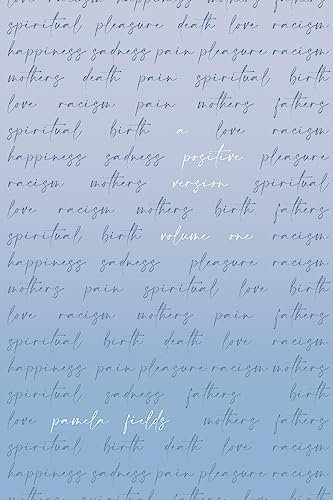 love racism happiness mothers fathers
spiritual pleasure death love racism
happiness sadness pain pleasure racism
mothers death pain spiritual birth
love racism pain mothers fathers
spiritual birth a love racism
happiness sadness positive pleasure
racism mothers version spiritual
love racism mothers birth fathers
spiritual birth volume one racism
happiness sadness pleasure racism
mothers pain spiritual love birth
love racism mothers pain fathers
spiritual birth death love racism
happiness pain pleasure racism mothers
spiritual sadness fathers birth
love pamela fields mothers fathers
spiritual birth death love racism
happiness sadness pain pleasure racism